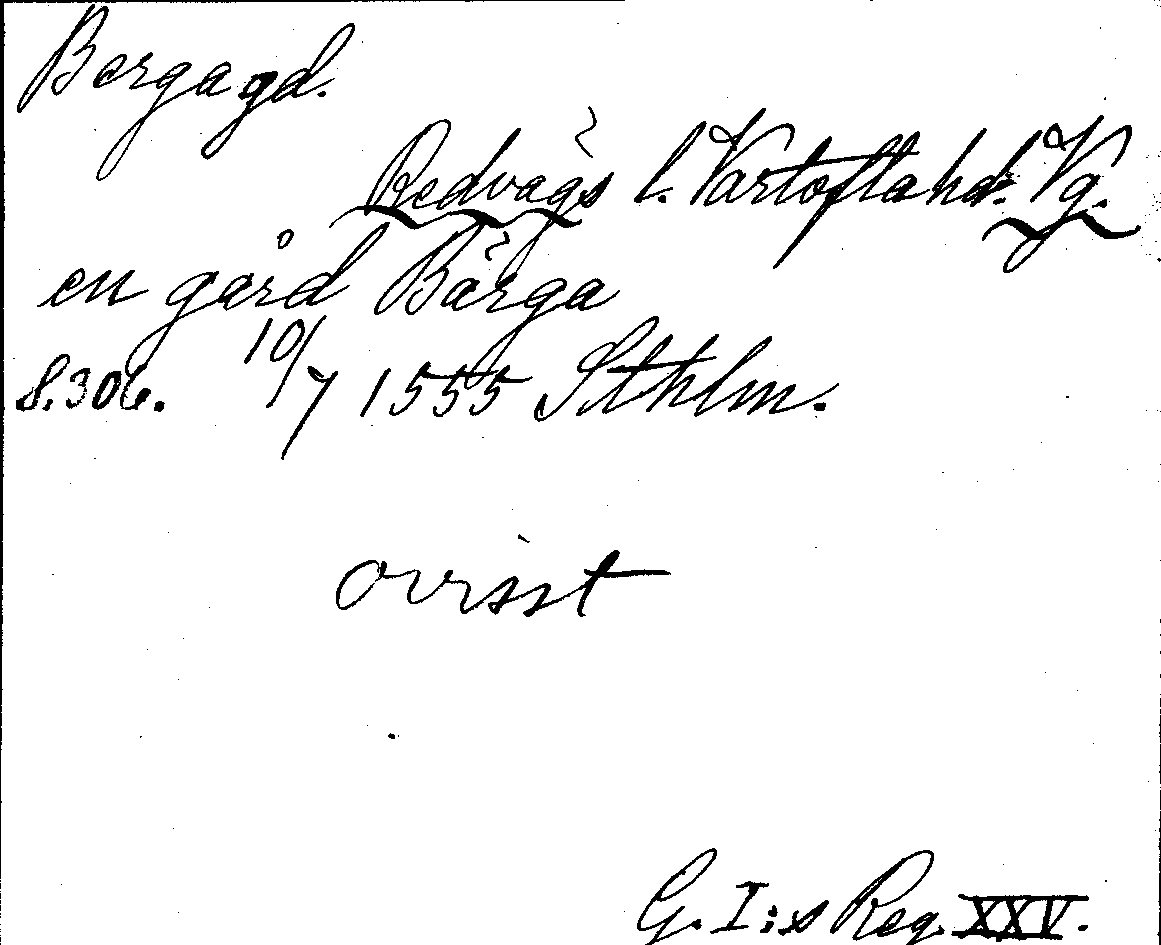 Berga gd.
Redvägs l. Vartofta hd. Vg.
en gård Bärga
S. 306. 10/7 1555 Sthlm.
ovisst
G. I:s Reg. XXV.